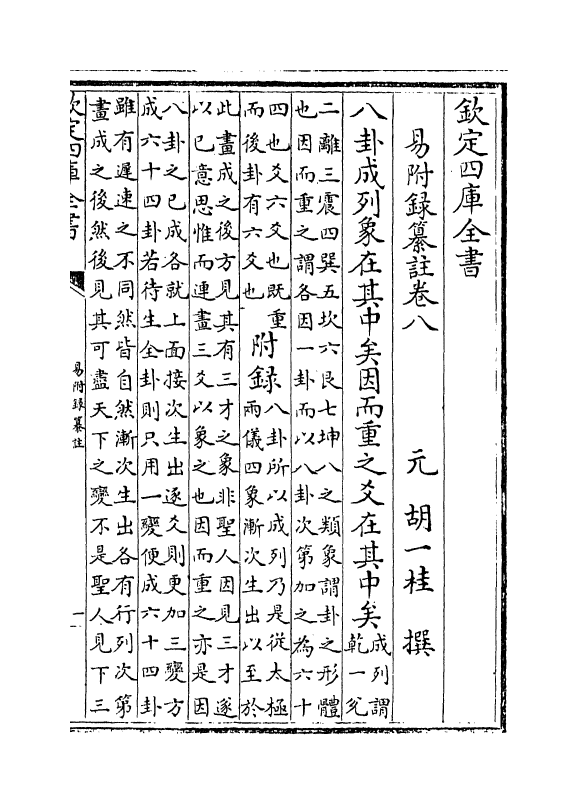 欽定四庫全書
易附録纂註卷八　元　胡一桂　撰
八卦成列象在其中矣因而重之爻在其中矣成列謂
乾一兑
二離三震四巽五坎六艮七坤八之類象謂卦之形體
也因而重之謂各因一卦而以八卦次第加之為六十
四也爻六爻也既重
而後卦有六爻也
附録
八卦所以成列乃是從太極
兩儀四象漸次生出以至於
此畫成之後方見其有三才之象非聖人因見三才遂
以已意思惟而連畫三爻以象之也因而重之亦是因
八卦之已成各就上面接次生出逐爻則更加三變方
成六十四卦若待生全卦則只用一變便成六十四卦
雖有遲速之不同然皆自然漸次生出各有行列次第
畫成之後然後見其可盡天下之變不是聖人見下三
欽定四庫全書
易附録纂註
一